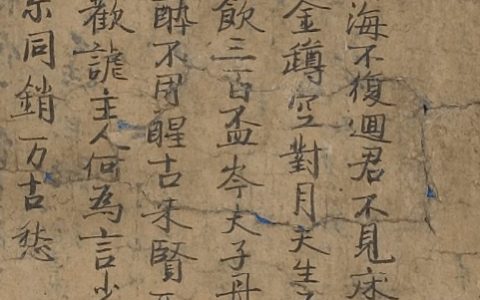 海不復迴君不見床
金罇空對月天生
飲三百盃岑夫子丹
醉不用醒古来賢
歡謔主人何為言少
同銷万古愁